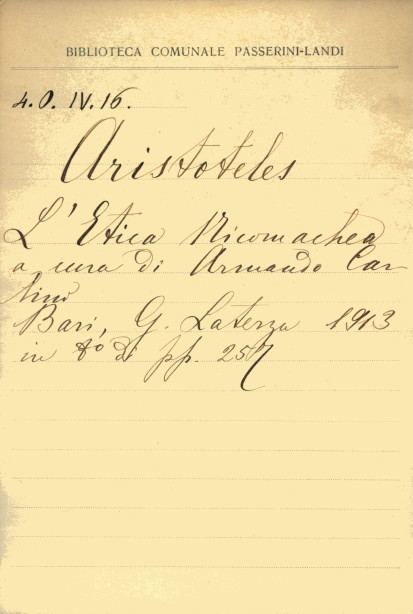 BIBLIOTECA COMUNALE PASSERINI-LANDI
4.O.IV.16.
Aristoteles
L'Etica Nicomachea
a cura di Armando Car
lini
Bari, G. Laterza 1913
in 8º di pp. 257